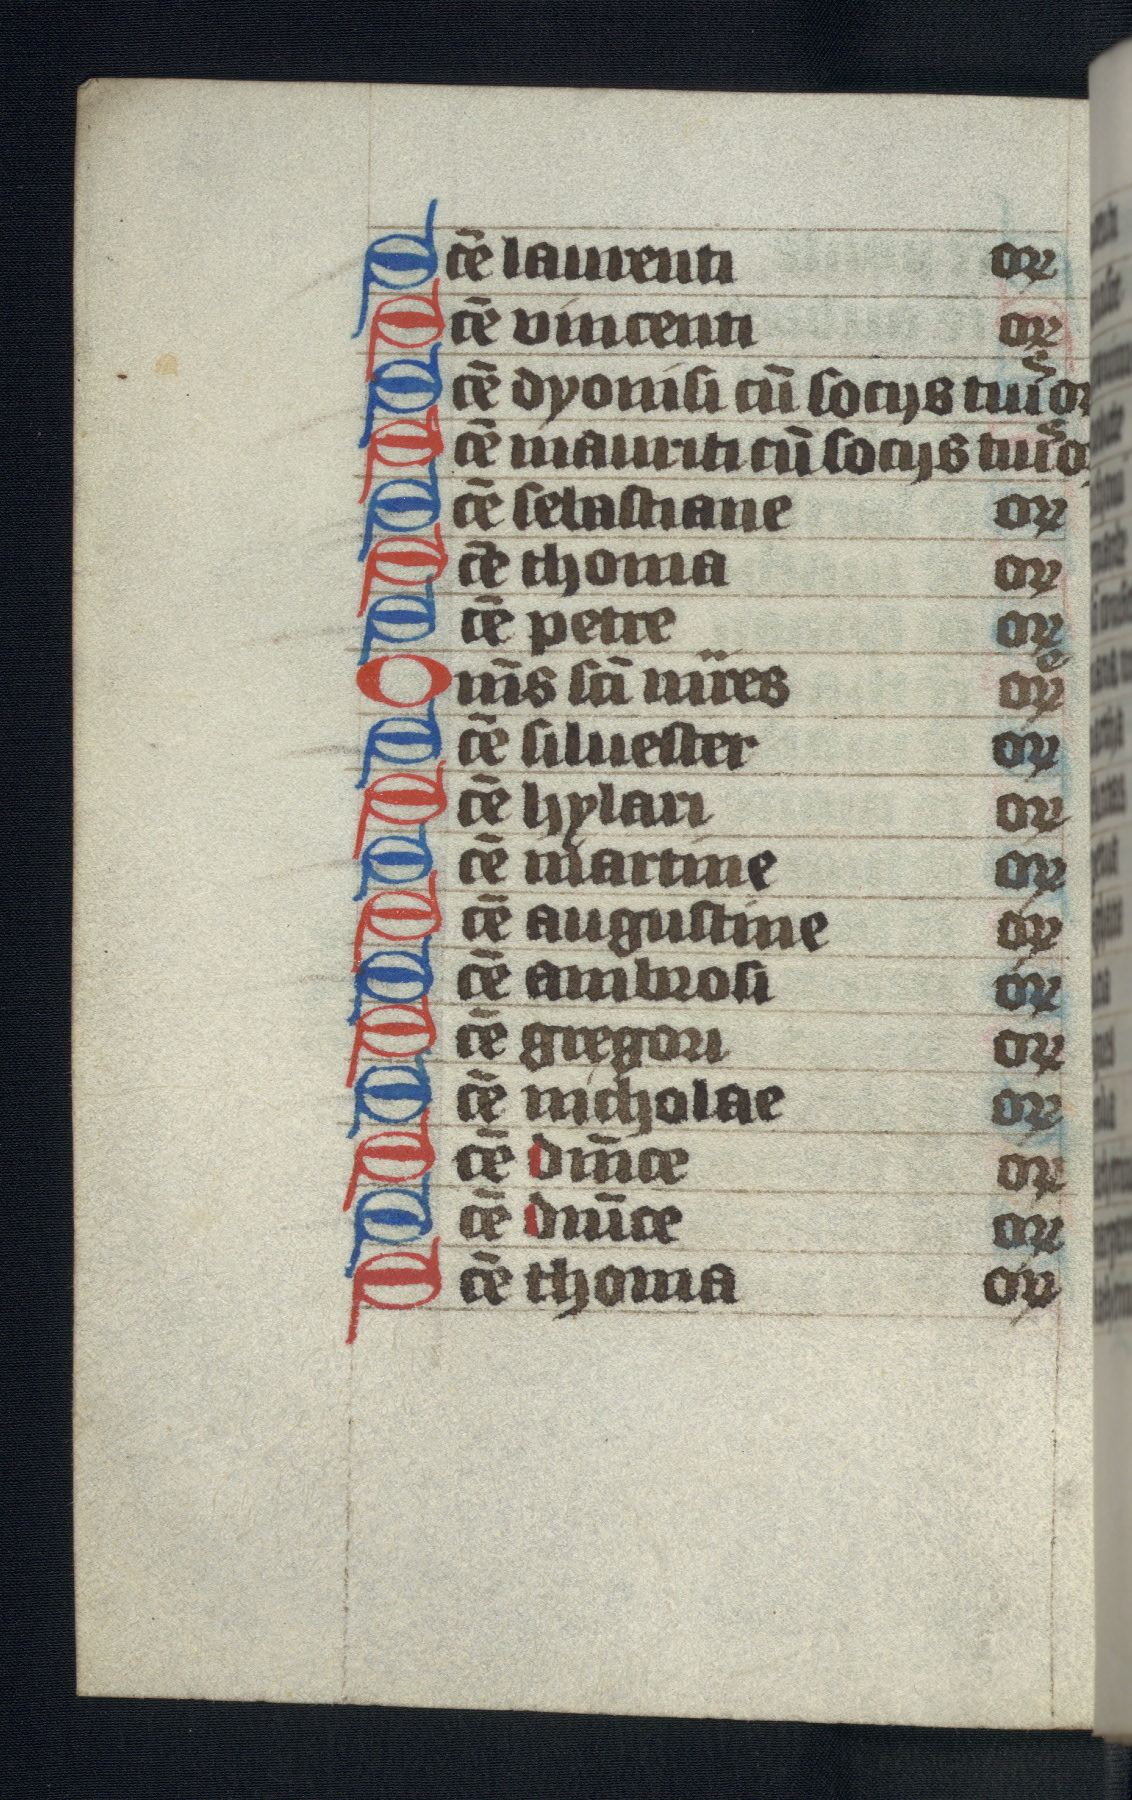 Scē laurenti or
Scē vincenti or
Scē dyonisi cū socijs tuis or
Scē mauriti cū socijs tuis or
Scē sebastiane or
Scē thoma or
Scē petre or
Om̄s sc̄i mr̄es or
Scē siluester or
Scē hylari or
Scē martine or
Scē augustine or
Scē ambrosi or
Scē gregori or
Scē nicholae or
Scē dn̄ice or
Scē dn̄ice or
Scē thoma or